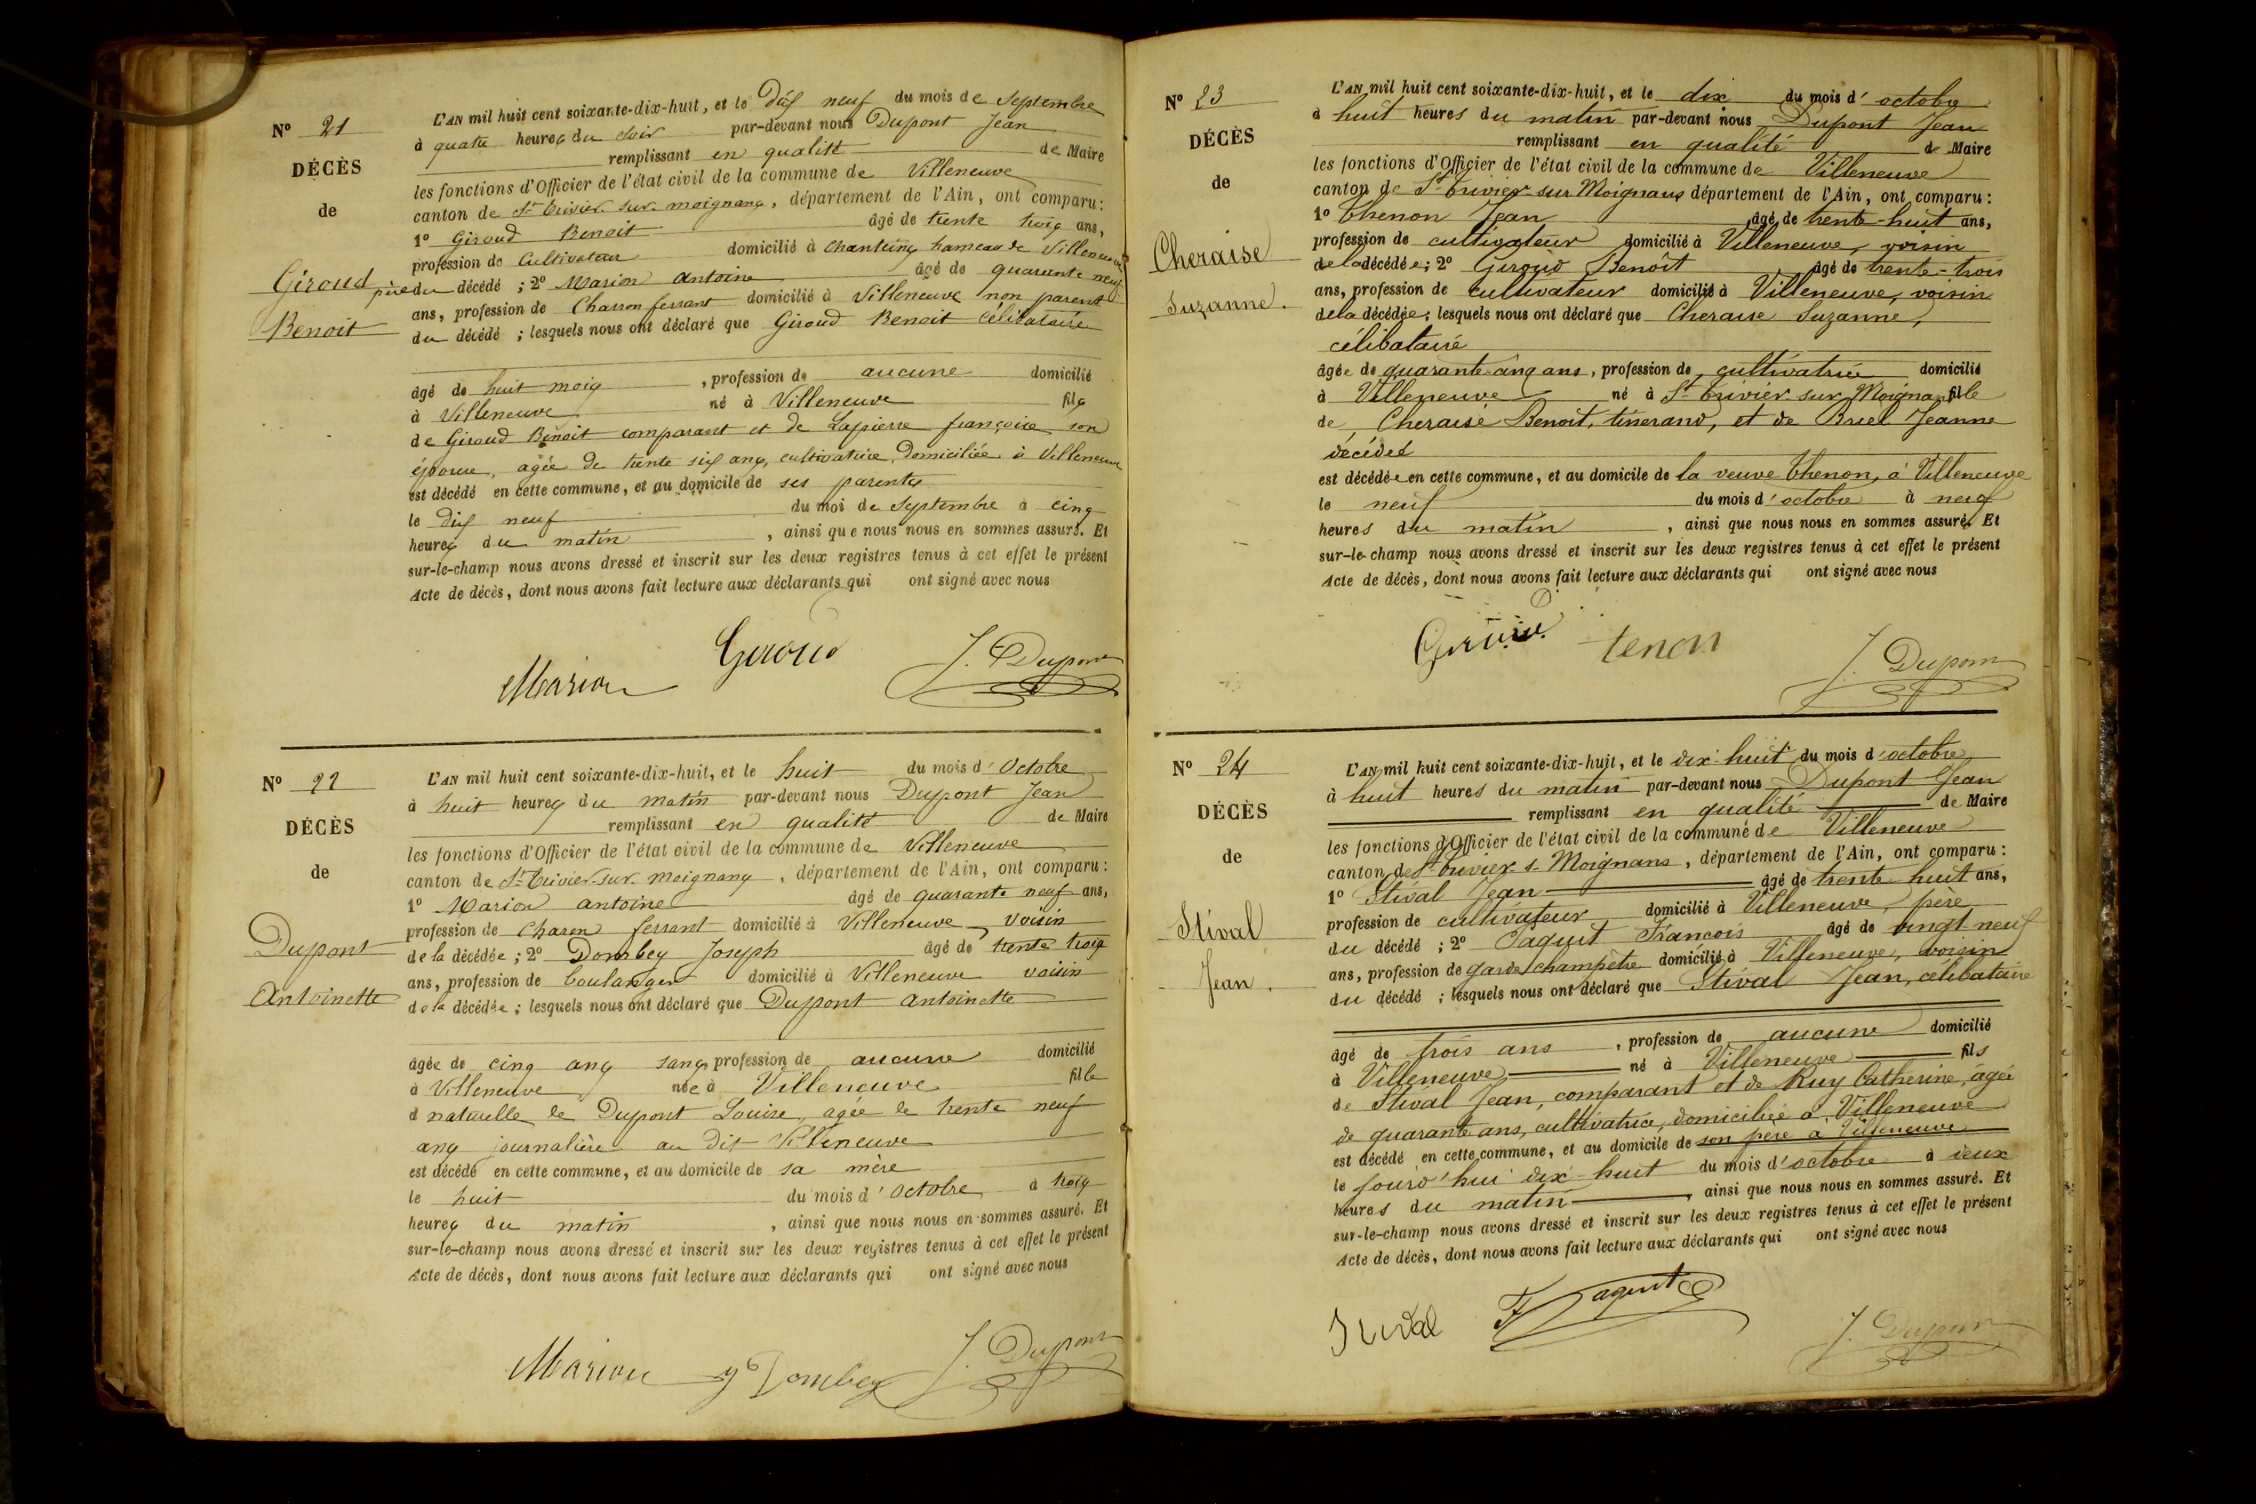 N° 21
DÉCÈS
de
Giroud
Benoit
L'AN mil huit cent soixante-dix-huit, et le dix neuf du mois de Septembre
à quatre heures du soir par-devant nous Dupont Jean
remplissant en qualité de Maire
les fonctions d'Officier de l'état civil de la commune de Villeneuve
canton de St Trivier sur moignans, département de l'Ain, ont comparu:
1° Giroud Benoit âgé de trente trois ans,
profession de Cultivateur domicilié à Chanteins hameau de Villeneuve
père du décédé ; 2° Marion Antoine âgé de quarante neuf
ans, profession de Charron ferrant domicilié à Villeneuve non parent
du décédé ; lesquels nous ont déclaré que Giroud Benoit célibataire
âgé de huit mois, profession de aucune domicilié
à Villeneuve né à Villeneuve fils
de Giroud Benoit comparant et de Lapierre françoise son
épouse, agée de trente six ans, cultivatrice, Domiciliée à Villeneuve
est décédé en cette commune, et au domicile de ses parents
le dix neuf du moi de Septembre à cinq
heures du matin, ainsi que nous nous en sommes assuré. Et
sur-le-champ nous avons dressé et inscrit sur les deux registres tenus à cet effet le présent
Acte de décès, dont nous avons fait lecture aux déclarants qui ont signé avec nous
Marion Giroud J. Dupont
N° 22
DÉCÈS
de
Dupont
Antoinette
L'AN mil huit cent soixante-dix-huit, et le huit du mois d'Octobre
à huit heures du matin par-devant nous Dupont Jean
remplissant en qualité de Maire
les fonctions d'Officier de l'état civil de la commune de Villeneuve
canton de St Trivier sur moignans, département de l'Ain, ont comparu:
1° Marion antoine âgé de quarante neuf ans,
profession de Charon ferrant domicilié à Villeneuve, voisin
de la décédée ; 2° Dombey Joseph âgé de trente trois
ans, profession de boulanger domicilié à Villeneuve voisin
de la décédée ; lesquels nous ont déclaré que Dupont antoinette
âgée de cinq ans sans profession de aucune domicilié
à Villeneuve née à Villeneuve fille
d naturelle de Dupont Louise, agée de trente neuf
ans journalière au dit Villeneuve
est décédé en cette commune, et au domicile de sa mère
le huit du mois d'Octobre à trois
heures du matin, ainsi que nous nous en sommes assuré. Et
sur-le-champ nous avons dressé et inscrit sur les deux registres tenus à cet effet le présent
Acte de décès, dont nous avons fait lecture aux déclarants qui ont signé avec nous
Marion J Dombey J. Dupont
N° 23
DÉCÈS
de
Cheraise
Suzanne.
L'AN mil huit cent soixante-dix-huit, et le dix du mois d'octobre
à huit heures du matin par-devant nous Dupont Jean
remplissant en qualité de Maire
les fonctions d'Officier de l'état civil de la commune de Villeneuve
canton de St Trivier sur Moignans département de l'Ain, ont comparu:
1° Thenon Jean, âgé de trente-huit ans,
profession de cultivateur domicilié à Villeneuve, voisin
de la décédée ; 2° Giroud Benoît âgé de trente-trois
ans, profession de cultivateur domicilié à Villeneuve, voisin
de la décédée ; lesquels nous ont déclaré que Cheraise Suzanne,
célibataire
âgée de quarante-cinq ans, profession de cultivatrice domicilié
à Villeneuve né à St Trivier sur Moignans fille
de Cheraise Benoit, tisserand, et de Briel Jeanne
décédés
est décédée en cette commune, et au domicile de la veuve Thenon, à Villeneuve
le neuf du mois d'octobre à neuf
heures du matin, ainsi que nous nous en sommes assuré. Et
sur-le-champ nous avons dressé et inscrit sur les deux registres tenus à cet effet le présent
Acte de décès, dont nous avons fait lecture aux déclarants qui ont signé avec nous
Giroud tenon J. Dupont
N° 24
DÉCÈS
de
Stival
Jean.
L'AN mil huit cent soixante-dix-huit, et le dix-huit du mois d'octobre
à huit heures du matin par-devant nous Dupont Jean
remplissant en qualité de Maire
les fonctions d'Officier de l'état civil de la commune de Villeneuve
canton de St Trivier s. Moignans, département de l'Ain, ont comparu:
1° Stival Jean âgé de trente huit ans,
profession de cultivateur domicilié à Villeneuve, père
du décédé ; 2° Jaquet François âgé de vingt neuf
ans, profession de garde champêtre domicilié à Villeneuve, voisin
du décédé ; lesquels nous ont déclaré que Stival Jean, célibataire
âgé de trois ans, profession de aucune domicilié
à Villeneuve né à Villeneuve fils
de Stival Jean, comparant et de Ruy Catherine, âgée
de quarante ans, cultivatrice, domiciliée à Villeneuve
est décédé en cette commune, et au domicile de son père à Villeneuve
le jourd'hui dix-huit du mois d'octobre à deux
heures du matin, ainsi que nous nous en sommes assuré. Et
sur-le-champ nous avons dressé et inscrit sur les deux registres tenus à cet effet le présent
Acte de décès, dont nous avons fait lecture aux déclarants qui ont signé avec nous
Stival F Jaquet J. Dupont